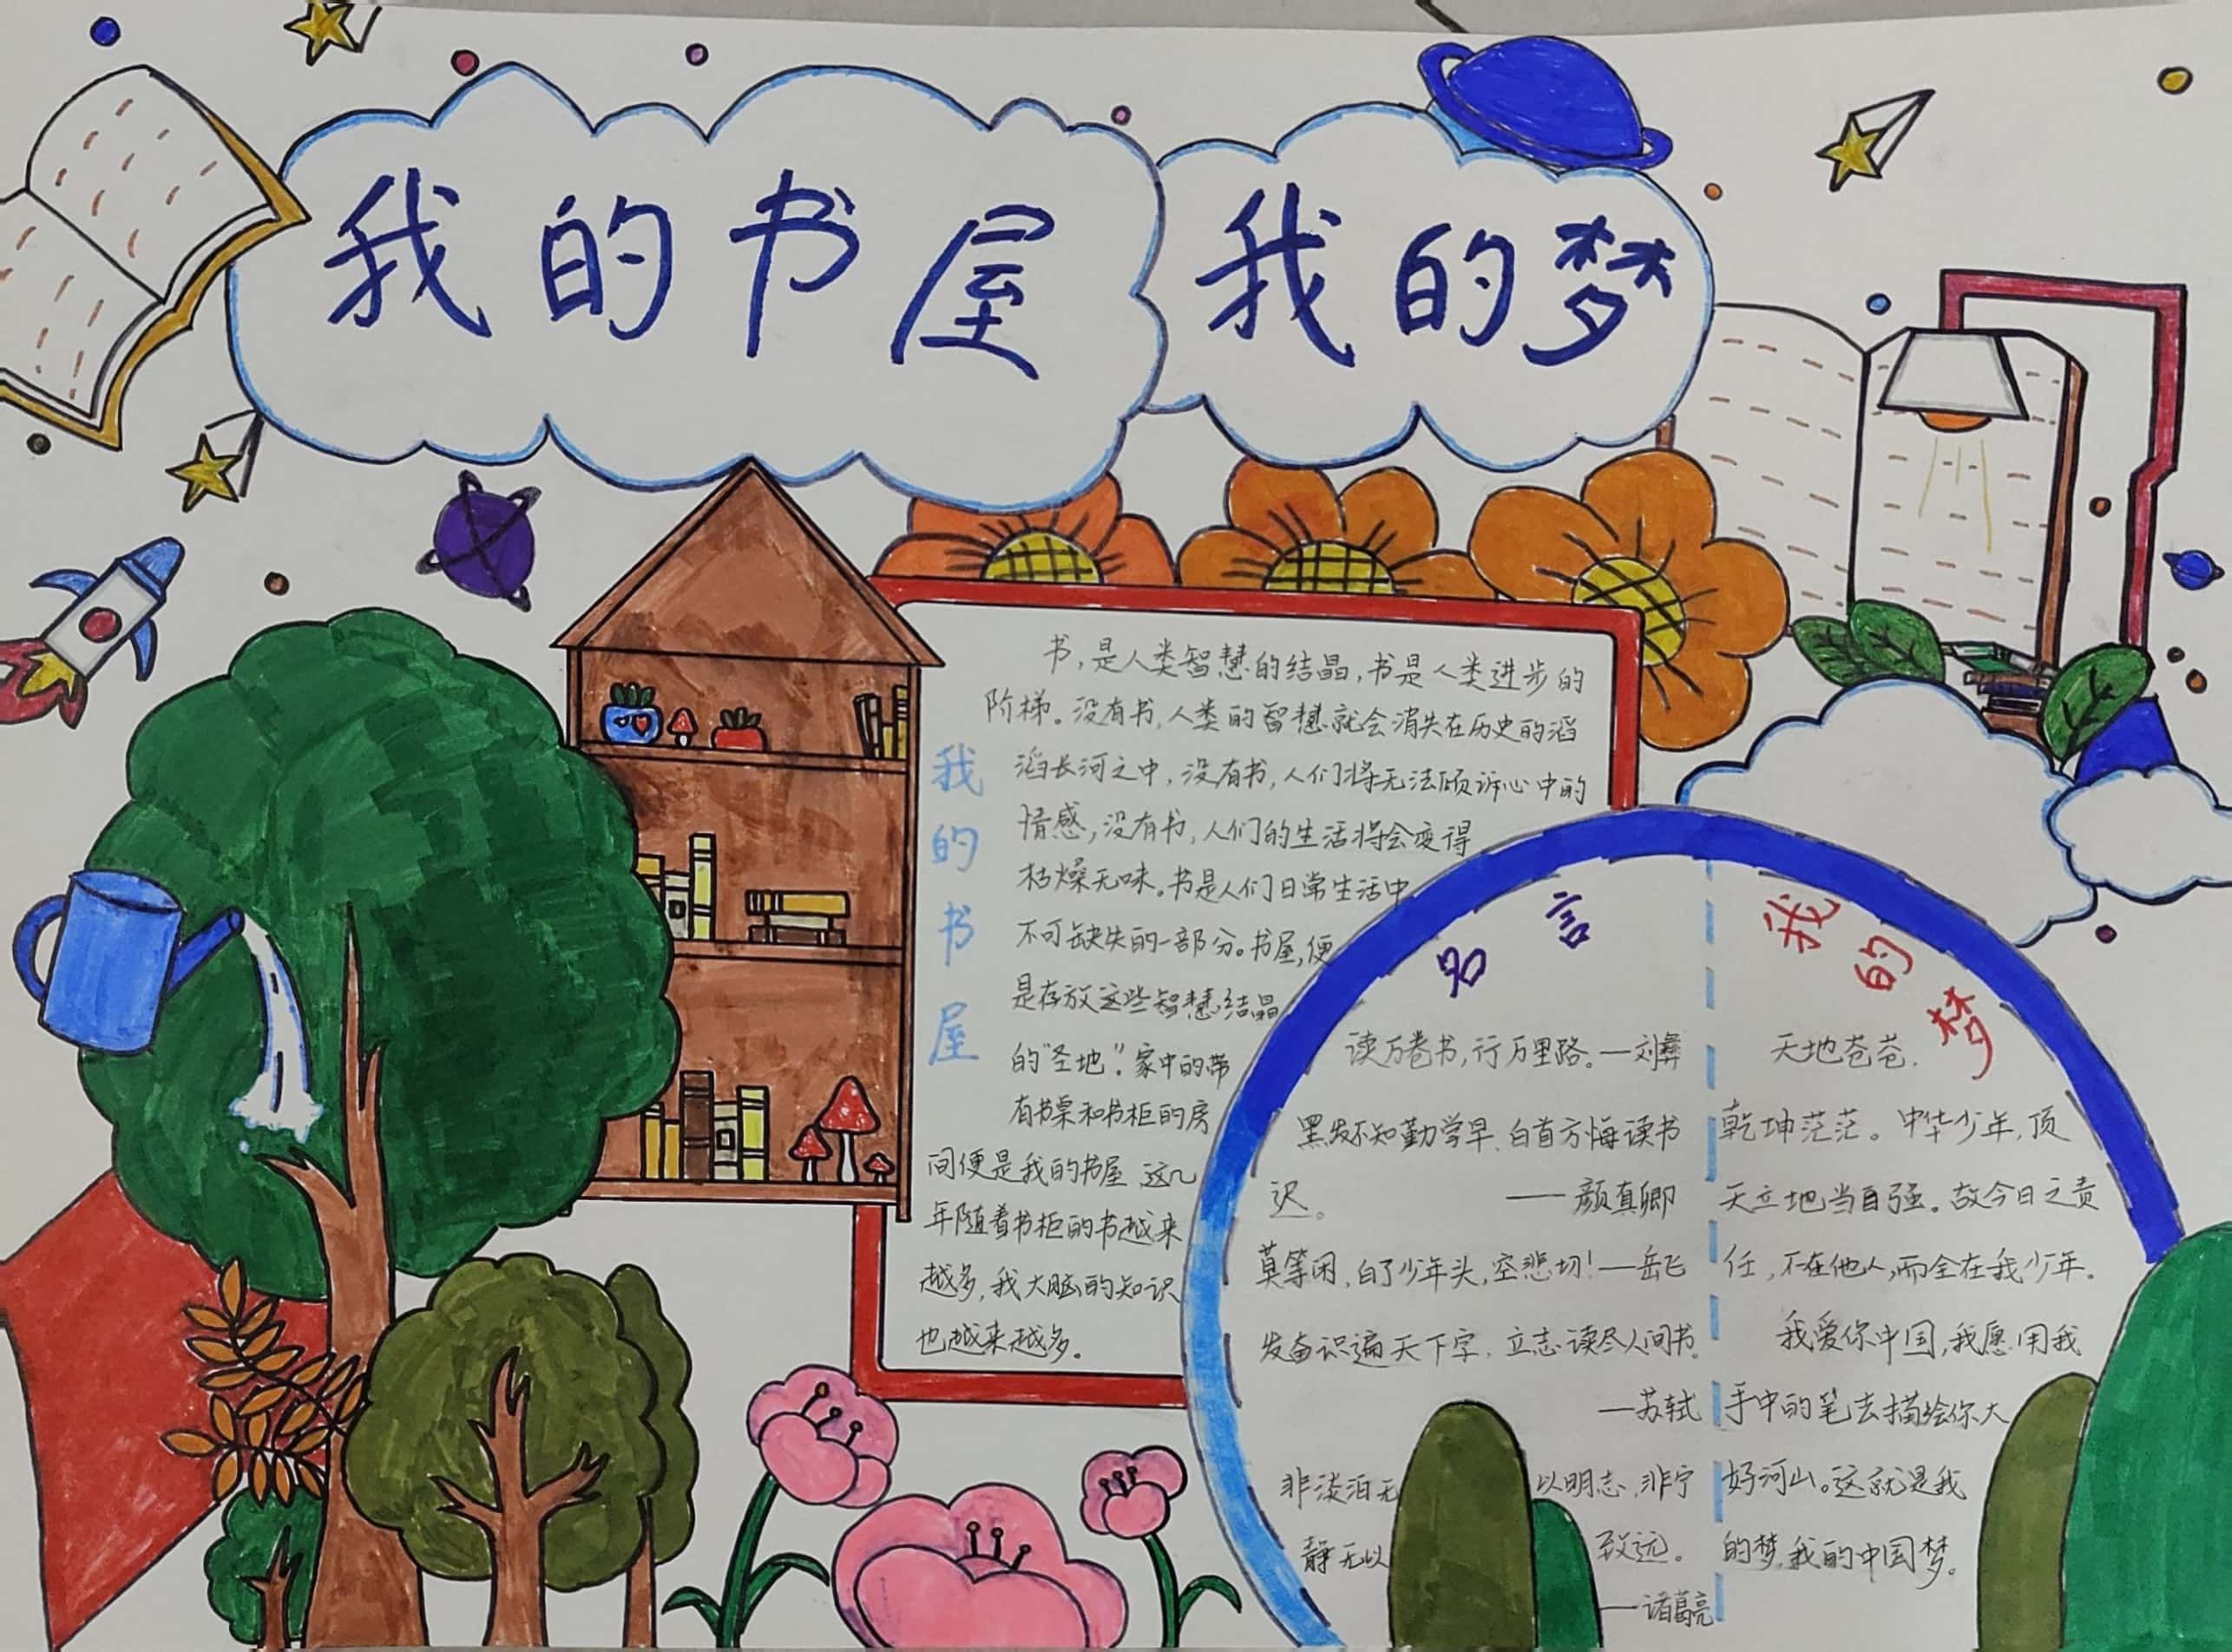 我的书屋 我的梦
我的书屋
书,是人类智慧的结晶,书是人类进步的
阶梯。没有书,人类的智慧就会消失在历史的滔
滔长河之中,没有书,人们将无法倾诉心中的
情感,没有书,人们的生活将会变得
枯燥无味。书是人们日常生活中
不可缺失的一部分。书屋,便
是存放这些智慧结晶
的“圣地”。家中的带
有书桌和书柜的房
间便是我的书屋 这几
年随着书柜的书越来
越多,我大脑的知识
也越来越多。
名言
读万卷书,行万里路。—刘彝
黑发不知勤学早,白首方悔读书
迟。 ——颜真卿
莫等闲,白了少年头,空悲切!—岳飞
发奋识遍天下字,立志读尽人间书。
—苏轼
非淡泊无 以明志,非宁
静无以 致远。
—诸葛亮
我的梦
天地苍苍,
乾坤茫茫。中华少年,顶
天立地当自强。故今日之责
任,不在他人,而全在我少年。
我爱你中国,我愿用我
手中的笔去描绘你大
好河山。这就是我
的梦,我的中国梦。